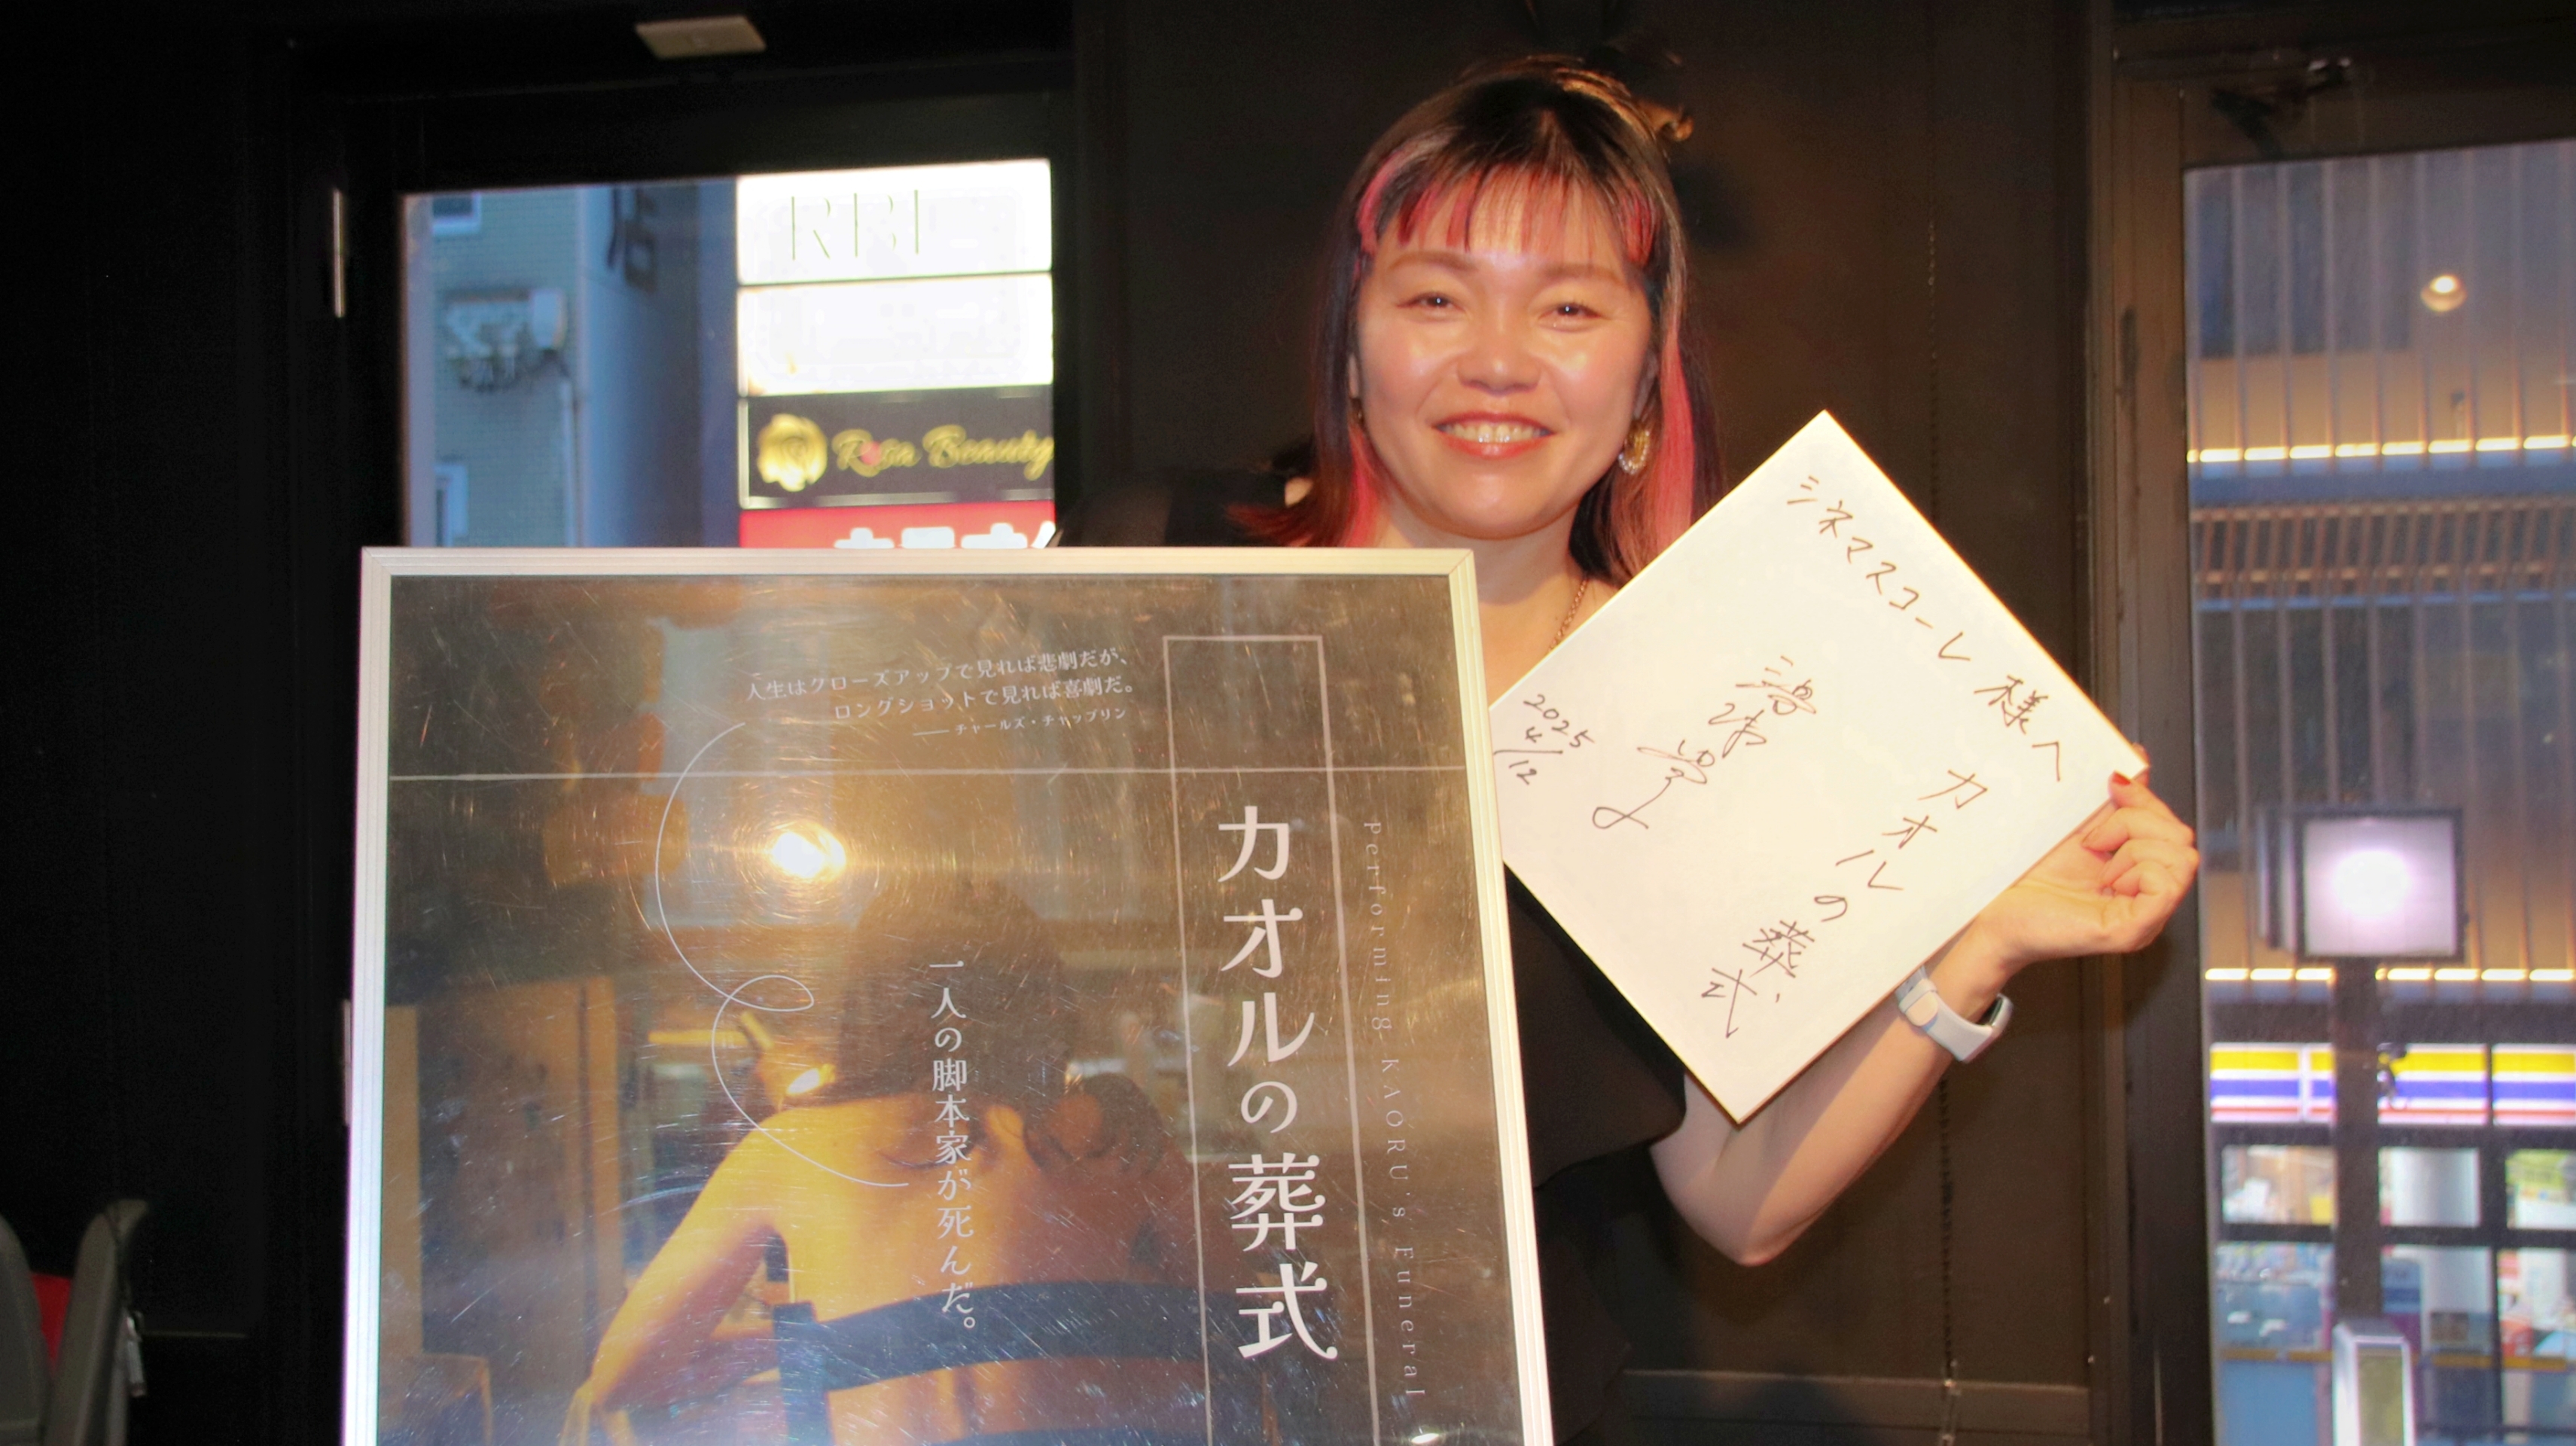 RBL
Rosa Beauty
人生はクローズアップで見れば悲劇だが、
ロングショットで見れば喜劇だ。
── チャールズ・チャップリン
カオルの葬式
performing KAORU's Funeral
一人の脚本家が死んだ。
シネマスコーレ様へ
カオルの葬式
2025
4/12